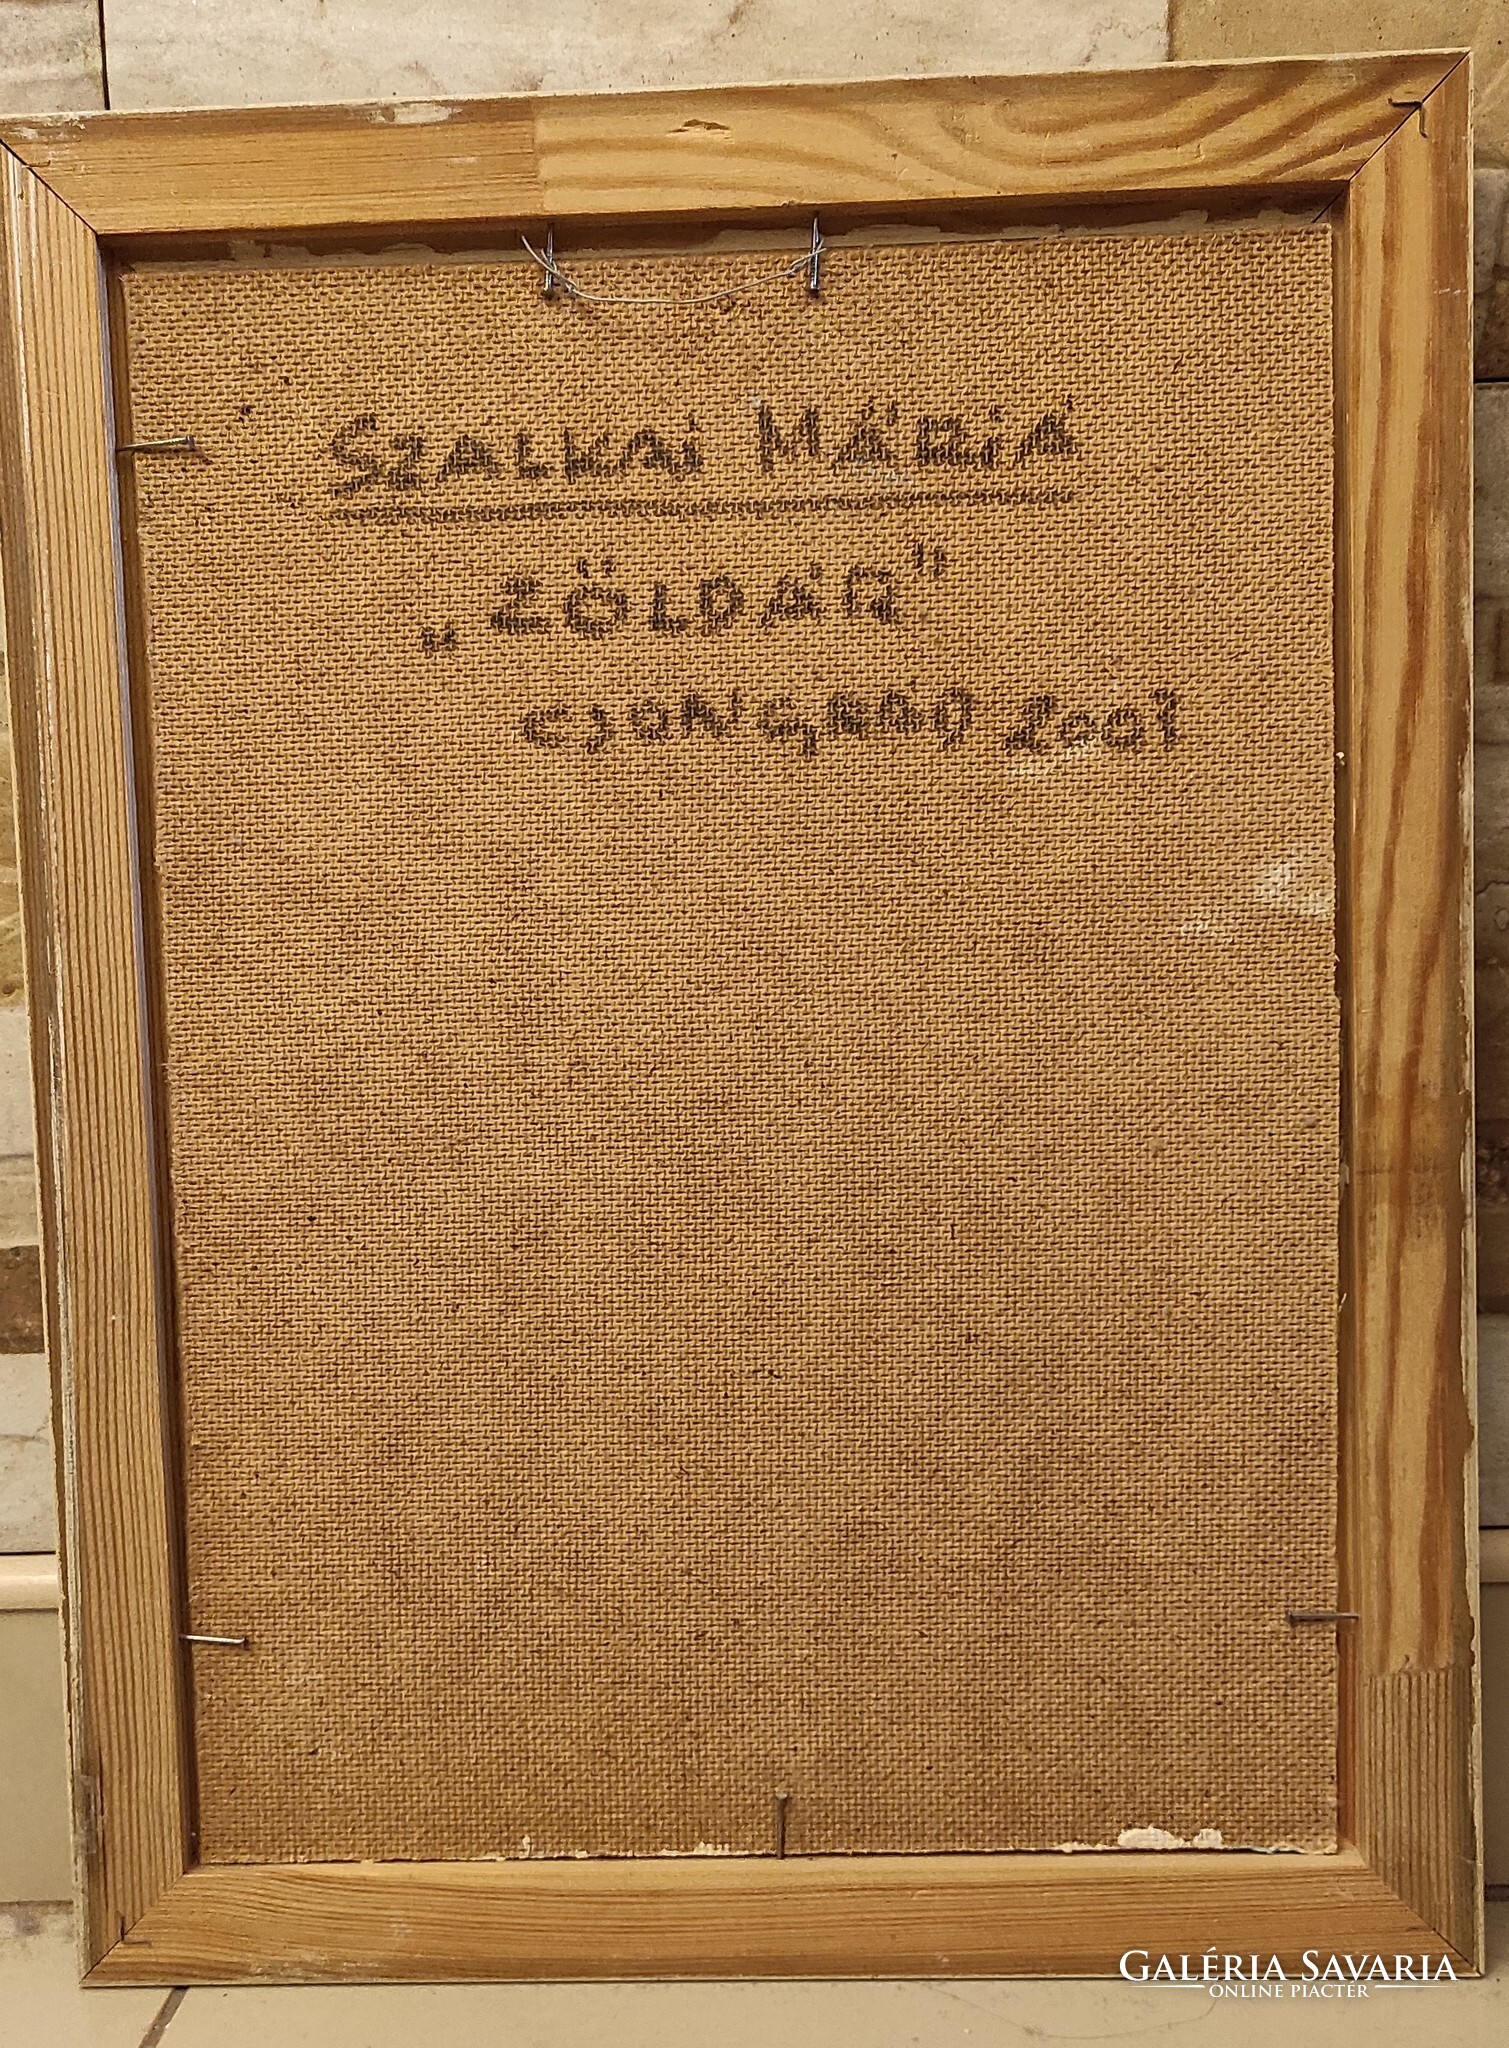 SZALKAI MÁRIA
„ZÖLDÁR”
CSONGRÁD 2001
GALÉRIA SAVARIA
ONLINE PIACTÉR